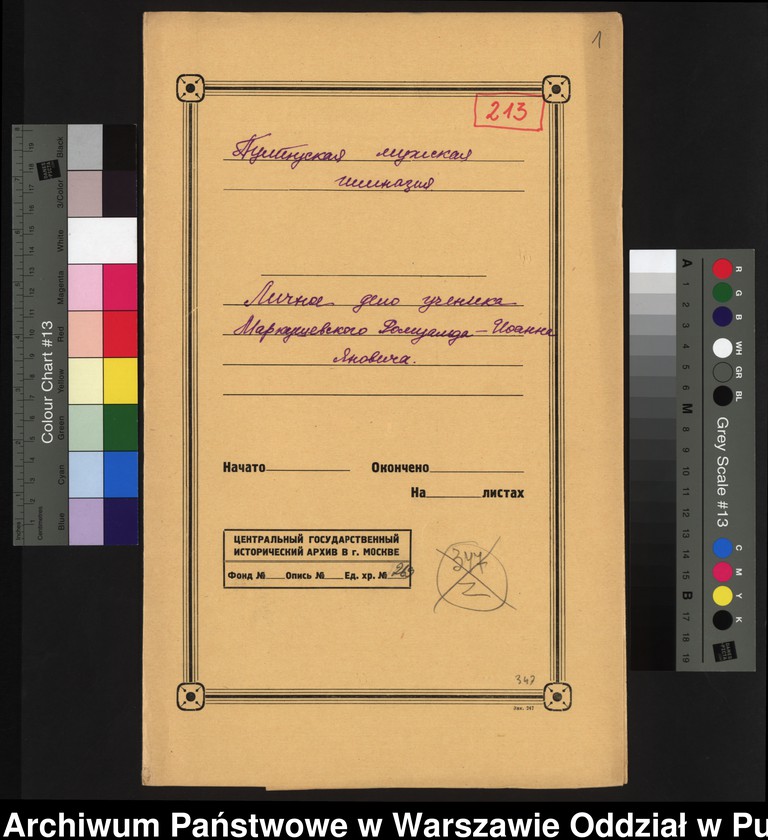 1
213
Пултуская мужская
гимназия
Личное дело ученика
Маркушевского Ромуальда-Иоанна
Яновича.
Начато Окончено
На листах
ЦЕНТРАЛЬНЫЙ ГОСУДАРСТВЕННЫЙ
ИСТОРИЧЕСКИЙ АРХИВ В г. МОСКВЕ
Фонд № Опись № Ед. хр. № 263
347
2
347
Зак. 247
Colour Chart #13
Inches
Centimetres
Blue Cyan Green Yellow Red Magenta White 3/Color Black
Grey Scale #13
A 1 2 3 4 5 6 M 8 9 10 11 12 13 14 15 B 17 18 19
R G B WH GR BL C M Y K
Archiwum Państwowe w Warszawie Oddział w Pu